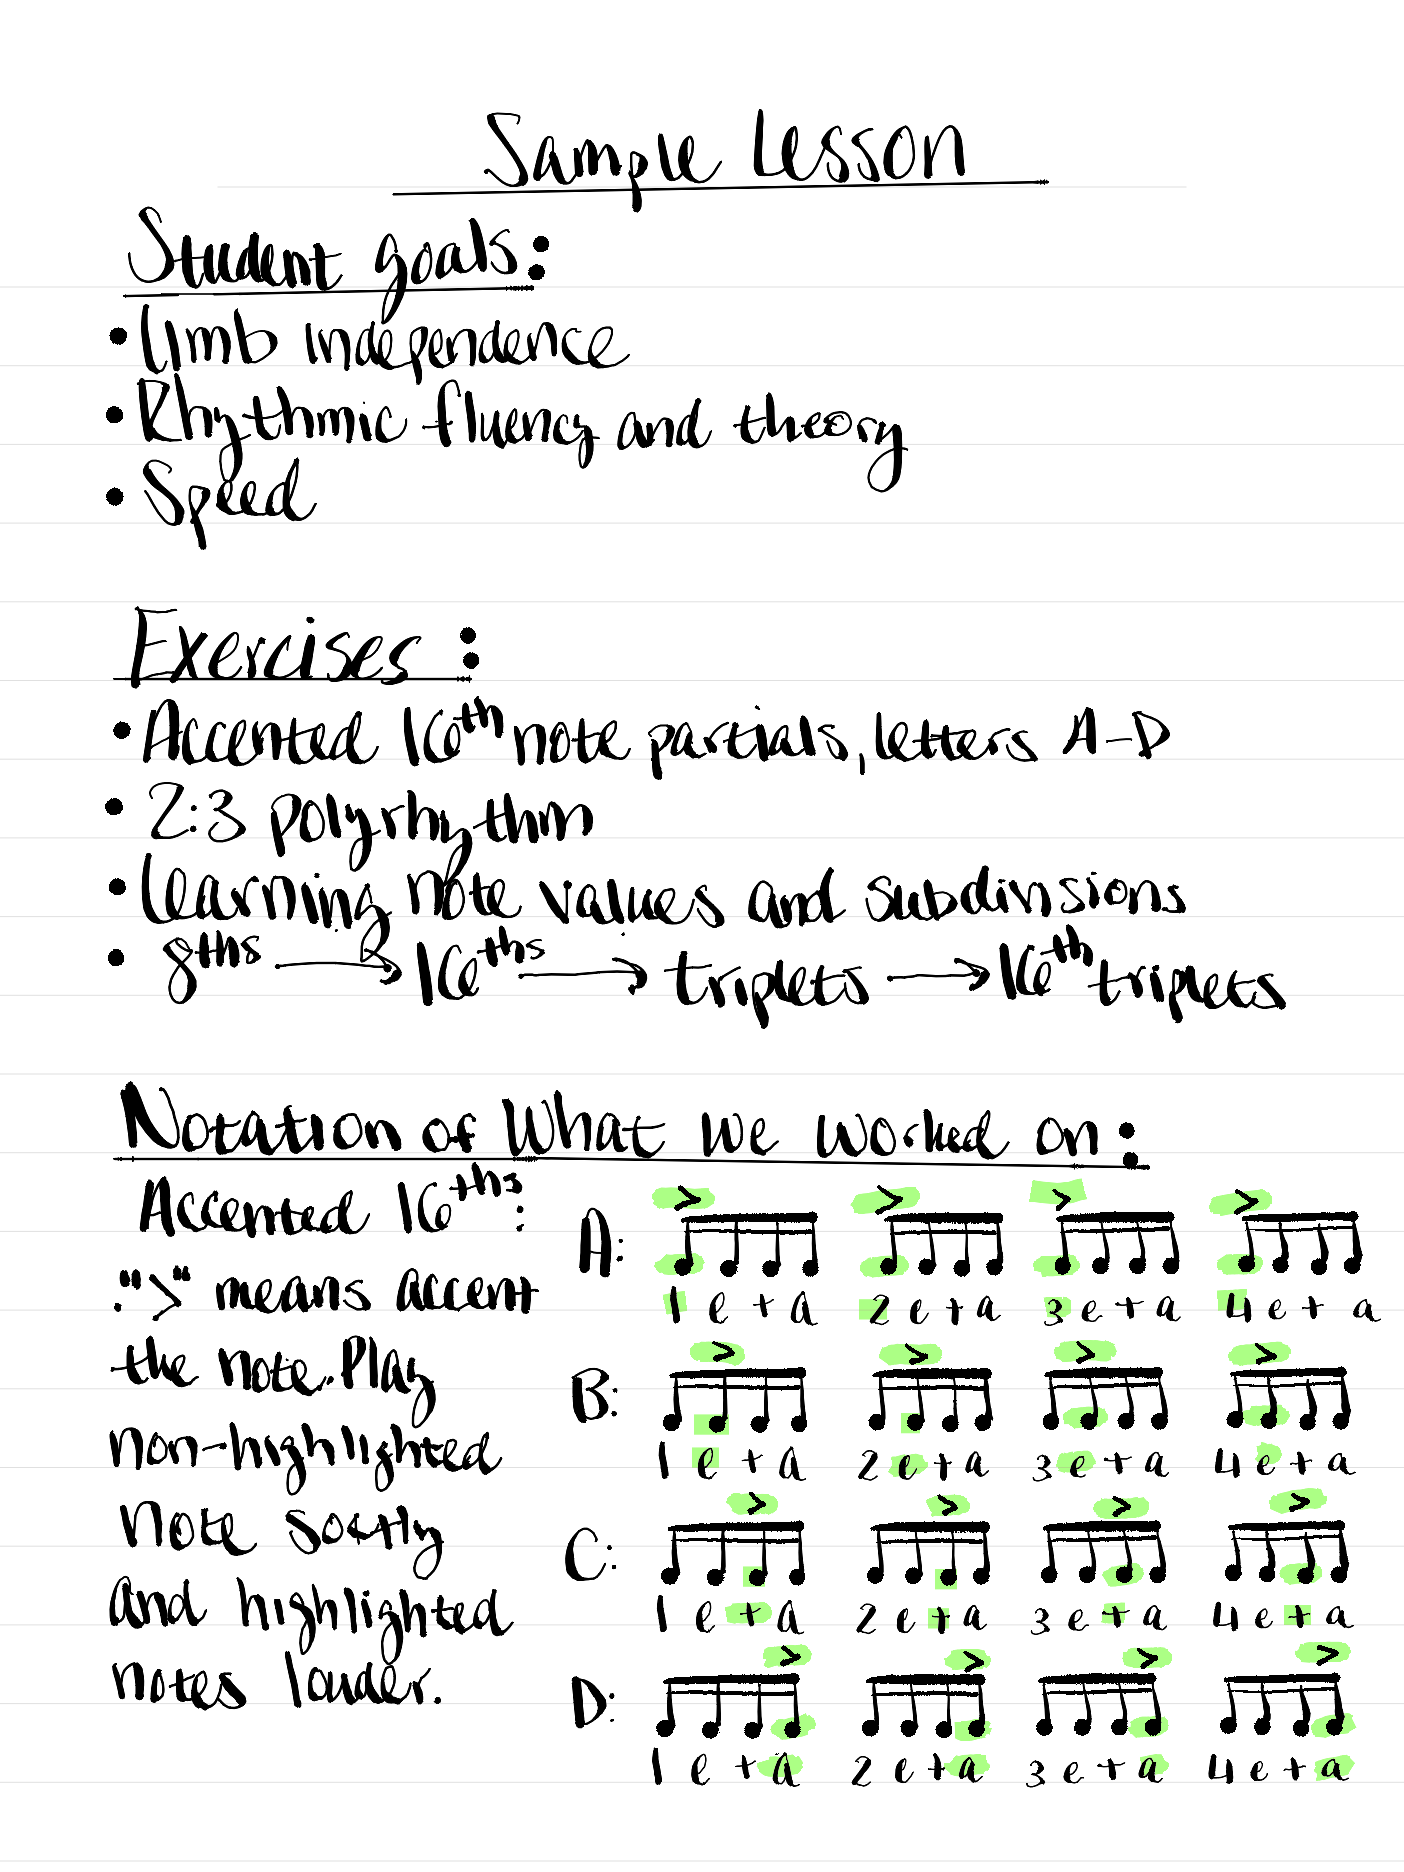 Sample Lesson
Student goals:
• Limb independence
• Rhythmic fluency and theory
• Speed
Exercises:
• Accented 16th note partials, letters A-D
• 2:3 polyrhythm
• Learning note values and subdivisions
• 8ths → 16ths → triplets → 16th triplets
Notation of What we worked on:
Accented 16ths:
">" means accent
the note. Play
non-highlighted
note softly
and highlighted
notes louder.
A: > > > >
1 e + a 2 e + a 3 e + a 4 e + a
B: > > > >
1 e + a 2 e + a 3 e + a 4 e + a
C: > > > >
1 e + a 2 e + a 3 e + a 4 e + a
D: > > > >
1 e + a 2 e + a 3 e + a 4 e + a